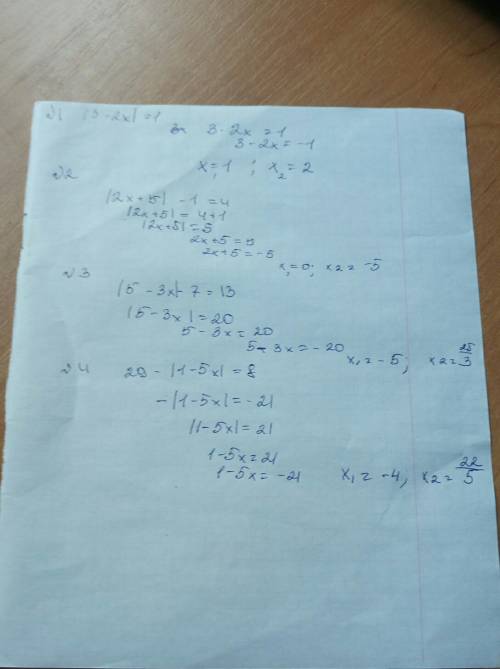 №1 |3-2x|=1
3-2x=1
3-2x=-1
x₁=1 ; x₂=2
№2
|2x+5| -1=4
|2x+5|=4+1
|2x+5|=5
2x+5=5
2x+5=-5
x₁=0; x₂=-5
№3
|5-3x|-7=13
|5-3x|=20
5-3x=20
5-3x=-20
x₁=-5; x₂=25/3
№4 29-|1-5x|=8
-|1-5x|=-21
|1-5x|=21
1-5x=21
1-5x=-21
x₁=-4; x₂=22/5